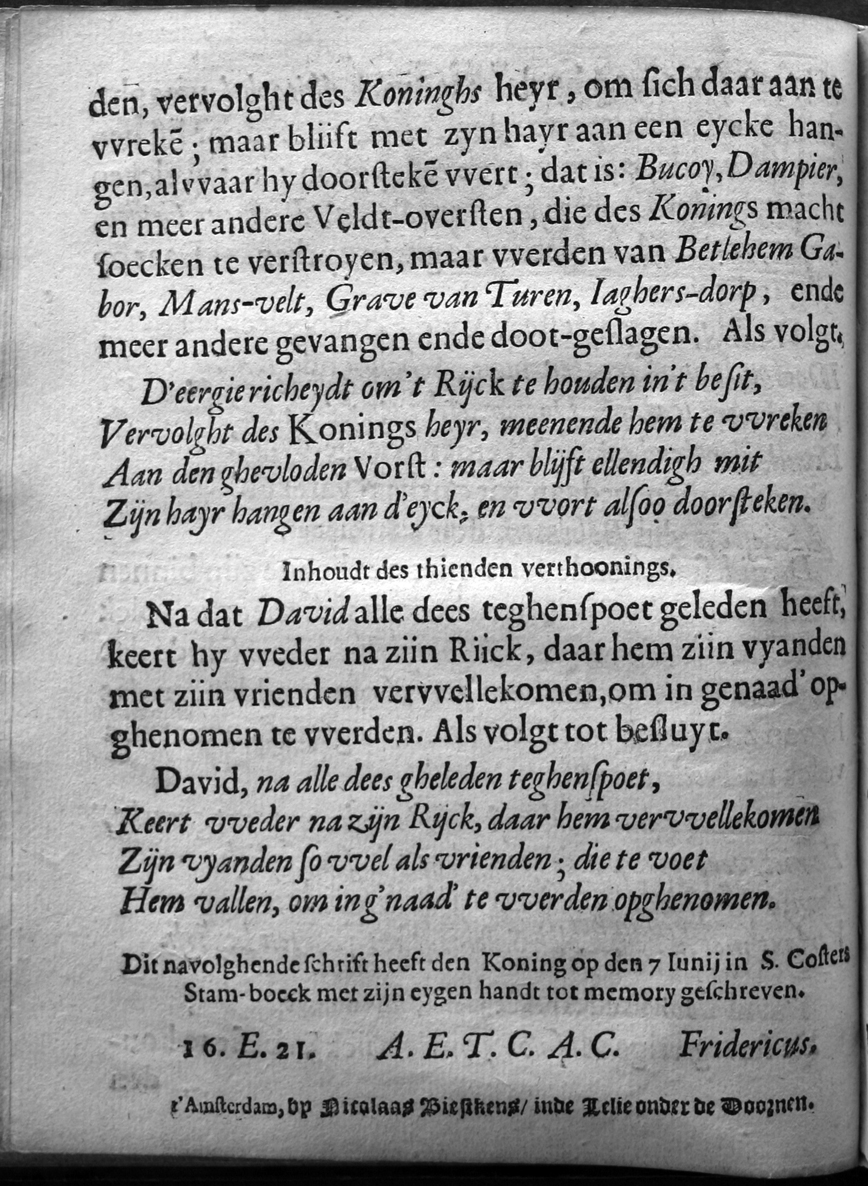 den, vervolght des Koninghs heyr, om ſich daar aan te
vvrekẽ; maar bliift met zyn hayr aan een eycke han-
gen, alvvaar hy doorſtekẽ vvert; dat is: Bucoy, Dampier,
en meer andere Veldt-overſten, die des Konings macht
ſoecken te verſtroyen, maar vverden van Betlehem Ga-
bor, Mans-velt, Grave van Turen, Iaghers-dorp, ende
meer andere gevangen ende doot-geſlagen. Als volgt,
D'eergiericheydt om't Rijck te houden in't beſit,
Vervolght des Konings heyr, meenende hem te vvreken
Aan den ghevloden Vorſt: maar blijft ellendigh mit
Zijn hayr hangen aan d'eyck; en vvort alſoo doorſteken.
Inhoudt des thienden verthoonings.
Na dat David alle dees teghenſpoet geleden heeft,
keert hy vveder na ziin Riick, daar hem ziin vyanden
met ziin vrienden vervvellekomen, om in genaad' op-
ghenomen te vverden. Als volgt tot beſluyt.
David, na alle dees gheleden teghenſpoet,
Keert vveder na zijn Rijck, daar hem vervvellekomen
Zijn vyanden ſo vvel als vrienden; die te voet
Hem vallen, om in g'naad' te vverden opghenomen.
Dit navolghende ſchrift heeft den Koning op den 7 Iunij in S. Coſters
Stam-boeck met zijn eygen handt tot memory geſchreven.
16. E. 21. A. E. T. C. A. C. Fridericus.
t'Amſterdam, by Nicolaas Bieſtkens/ inde Lelie onder de Doornen.